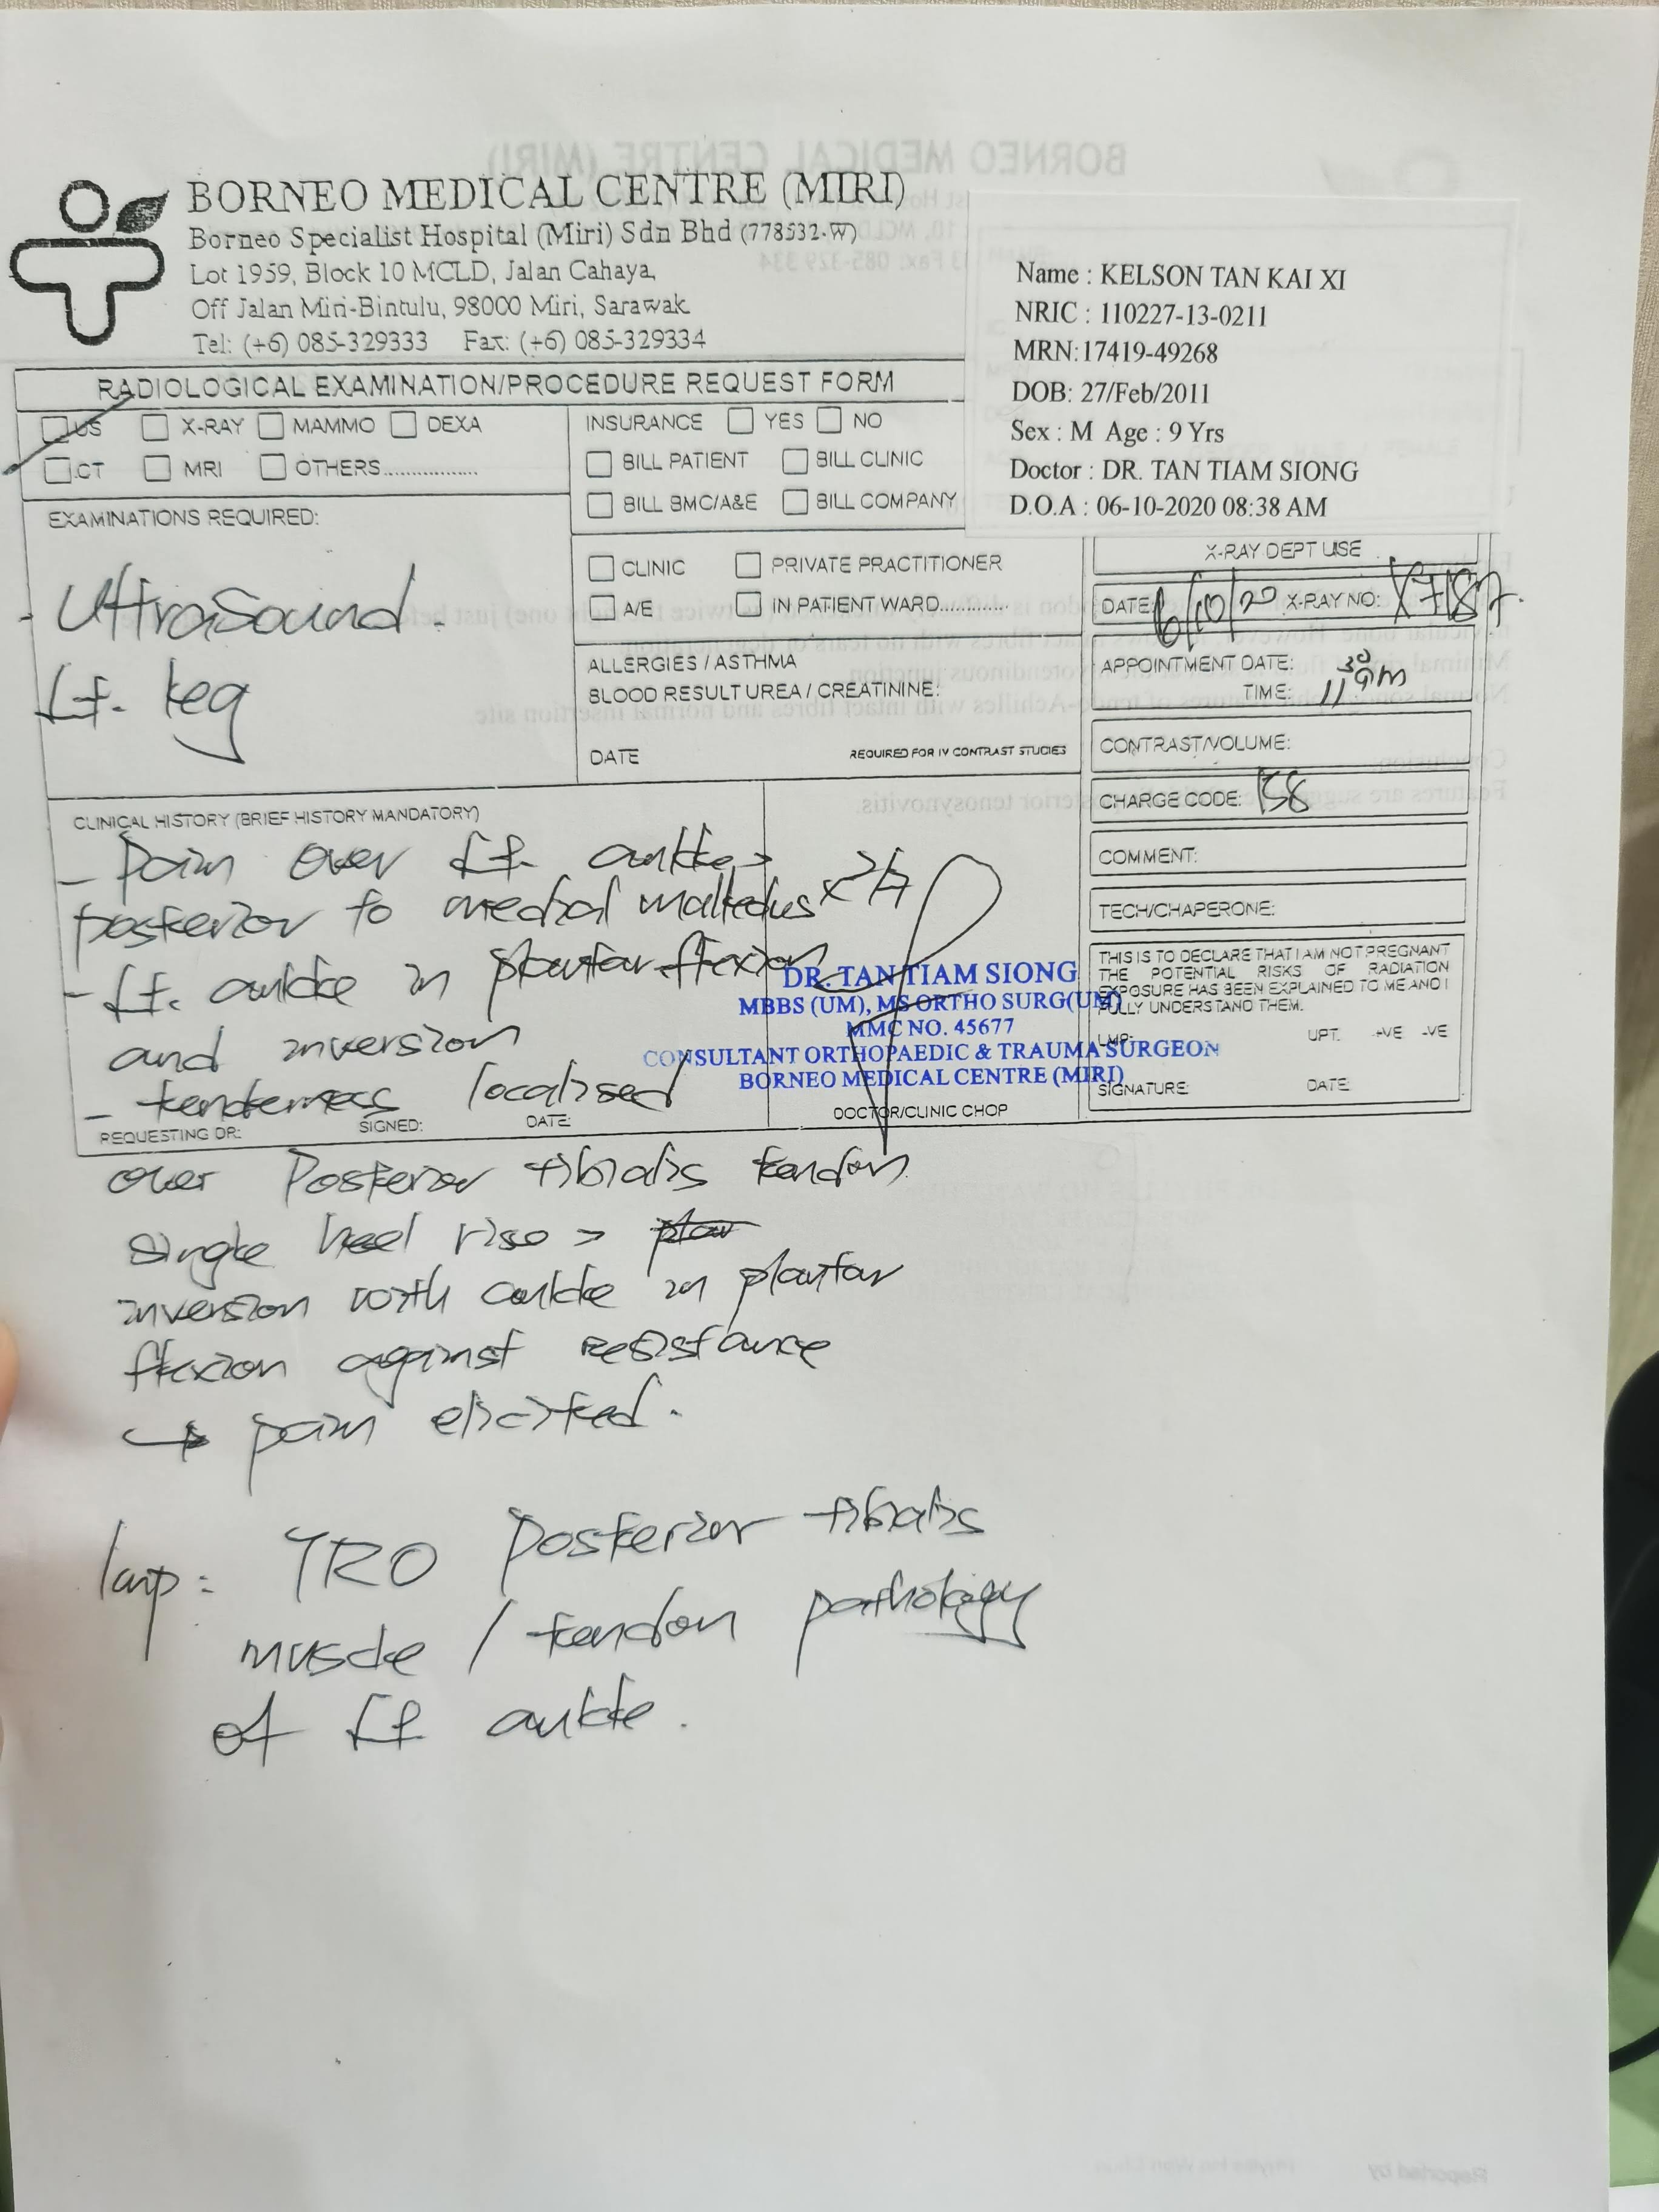 BORNEO MEDICAL CENTRE (MIRI)
Borneo Specialist Hospital (Miri) Sdn Bhd (778532-W)
Lot 1959, Block 10 MCLD, Jalan Cahaya,
Off Jalan Miri-Bintulu, 98000 Miri, Sarawak.
Tel: (+6) 085-329333 Fax: (+6) 085-329334
Name : KELSON TAN KAI XI
NRIC : 110227-13-0211
MRN:17419-49268
DOB: 27/Feb/2011
Sex : M Age : 9 Yrs
Doctor : DR. TAN TIAM SIONG
D.O.A : 06-10-2020 08:38 AM
RADIOLOGICAL EXAMINATION/PROCEDURE REQUEST FORM
US X-RAY MAMMO DEXA
CT MRI OTHERS................
INSURANCE YES NO
BILL PATIENT BILL CLINIC
BILL BMC/A&E BILL COMPANY
EXAMINATIONS REQUIRED:
- Ultrasound.
Lt. leg
CLINIC PRIVATE PRACTITIONER
A/E IN PATIENT WARD.............
ALLERGIES / ASTHMA
BLOOD RESULT UREA / CREATININE:
DATE REQUIRED FOR IV CONTRAST STUDIES
X-RAY DEPT USE
DATE: 6/10/20 X-RAY NO:
APPOINTMENT DATE:
TIME: 11 30 am
CONTRAST/VOLUME:
CHARGE CODE:
COMMENT:
TECH/CHAPERONE:
THIS IS TO DECLARE THAT I AM NOT PREGNANT
THE POTENTIAL RISKS OF RADIATION
EXPOSURE HAS BEEN EXPLAINED TO ME AND I
FULLY UNDERSTAND THEM.
LMP: UPT. +VE -VE
SIGNATURE: DATE:
CLINICAL HISTORY (BRIEF HISTORY MANDATORY)
- Pain over Lt. ankle >
posterior to medial malleolus x 2/7
- Lt. ankle in plantar flexion
and inversion
- tenderness localised
DR. TAN TIAM SIONG
MBBS (UM), MS ORTHO SURG(UM)
MMC NO. 45677
CONSULTANT ORTHOPAEDIC & TRAUMA SURGEON
BORNEO MEDICAL CENTRE (MIRI)
DOCTOR/CLINIC CHOP
REQUESTING DR: SIGNED: DATE:
over Posterior tibialis tendon
single heel rise >
inversion with ankle in plantar
flexion against resistance
↳ pain elicited.
Imp: TRO Posterior tibialis
muscle / tendon pathology
of Lt. ankle.